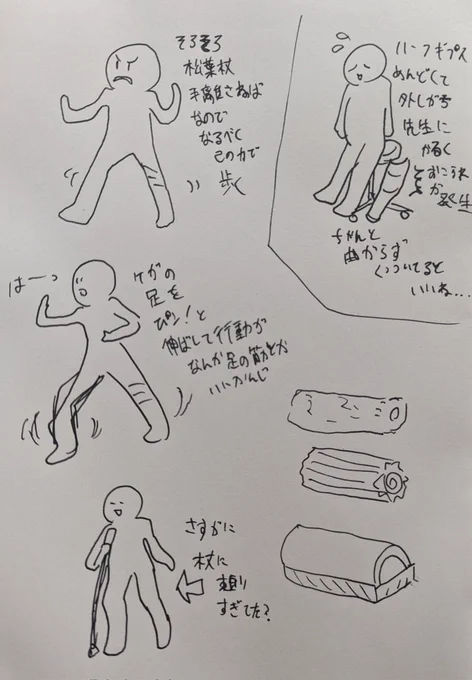 そろそろ
松葉杖
手離さねば
なので
なるべく
己の力で
歩く
ハーフギプス
めんどくて
外しがち
先生に
かるく
おこられ
が発生
ちゃんと
曲がらず
くっついてると
いいね…
はーっ
ケガの
足を
ピン!と
伸ばして行動が
なんか足の筋とか
いいかんじ
さすがに
杖に
頼り
すぎてた?